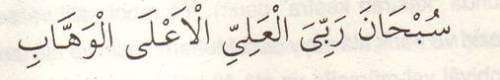 سُبْحَانَ رَبِّىَ الْعَلِيِّ الْاَعْلَى الْوَهَّابِ